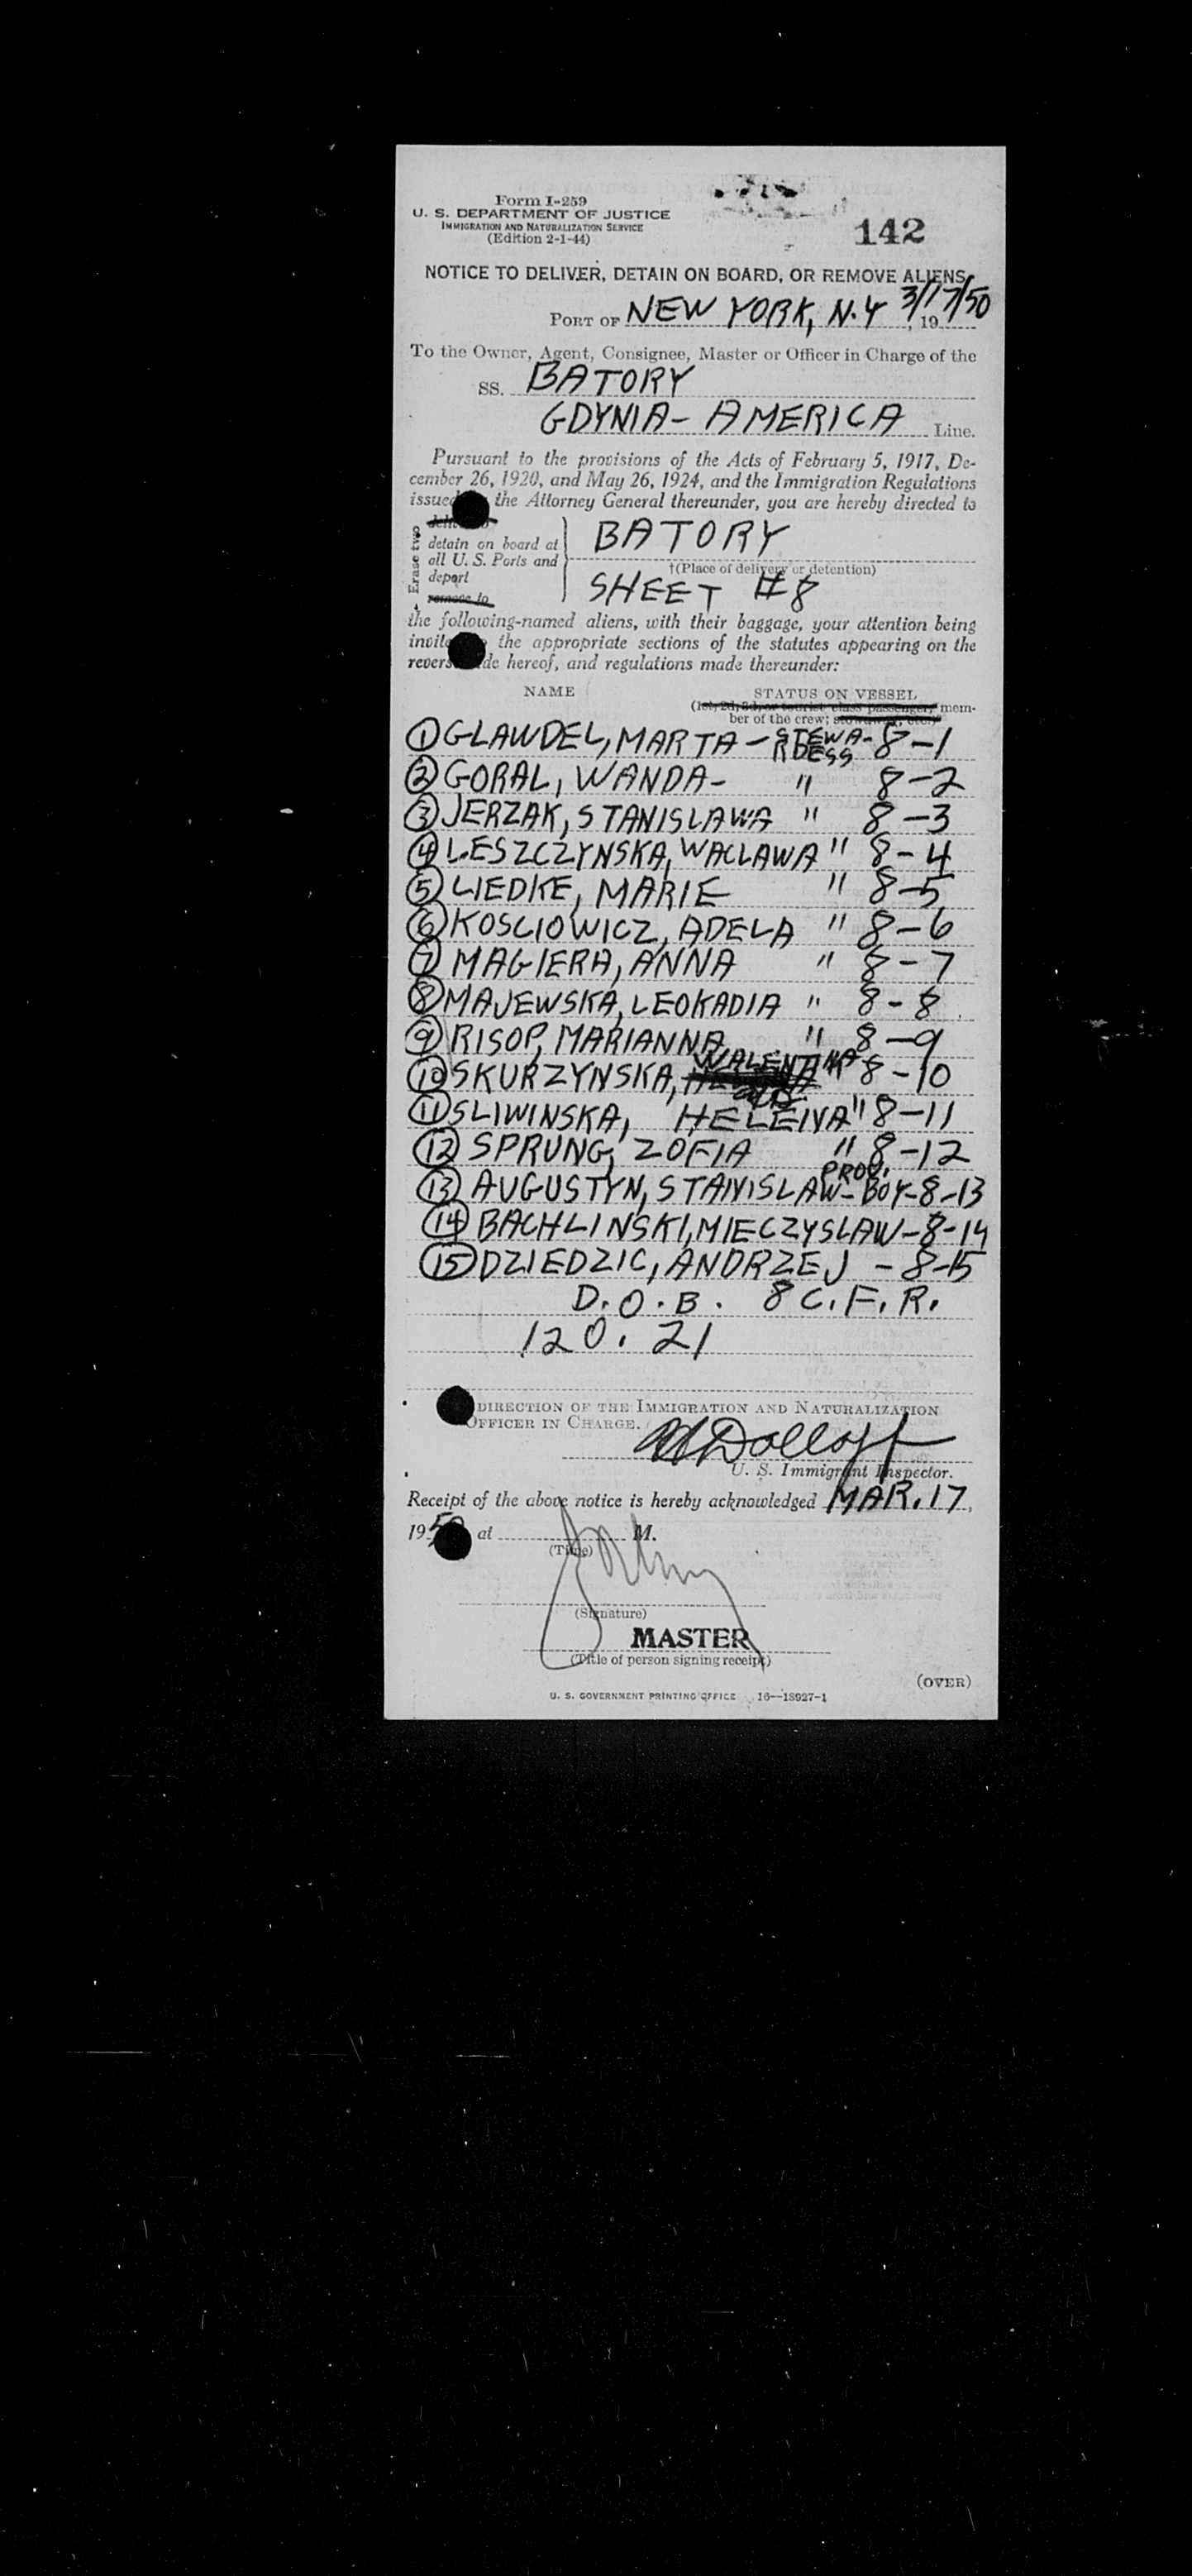 Form I-259
U. S. DEPARTMENT OF JUSTICE
IMMIGRATION AND NATURALIZATION SERVICE
(Edition 2-1-44)
142
NOTICE TO DELIVER, DETAIN ON BOARD, OR REMOVE ALIENS
PORT OF NEW YORK, N.Y 3/17/50, 19
To the Owner, Agent, Consignee, Master or Officer in Charge of the
SS. BATORY
GDYNIA-AMERICA Line.
Pursuant to the provisions of the Acts of February 5, 1917, De-
cember 26, 1920, and May 26, 1924, and the Immigration Regulations
issued the Attorney General thereunder, you are hereby directed to
Erase two
detain on board at
all U. S. Ports and
deport
remove to
BATORY
†(Place of delivery or detention)
SHEET #8
the following-named aliens, with their baggage, your attention being
invite the appropriate sections of the statutes appearing on the
revers de hereof, and regulations made thereunder:
NAME STATUS ON VESSEL
(1st, 2d, 3d, or tourist class passenger, mem-
ber of the crew; stowaway, etc.)
1 GLAWDEL, MARTA - STEWA-RDESS 8-1
2 GORAL, WANDA- " 8-2
3 JERZAK, STANISLAWA " 8-3
4 LESZCZYNSKA, WACLAWA " 8-4
5 LIEDKE, MARIE " 8-5
6 KOSCIOWICZ, ADELA " 8-6
7 MAGIERA, ANNA " 8-7
8 MAJEWSKA, LEOKADIA " 8-8
9 RISOP, MARIANNA " 8-9
10 SKURZYNSKA, WALENTINA 8-10
11 SLIWINSKA, HELENA " 8-11
12 SPRUNG, ZOFIA " 8-12
13 AUGUSTYN, STANISLAW- PROV. BOY-8-13
14 BACHLINSKI, MIECZYSLAW-8-14
15 DZIEDZIC, ANDRZEJ - 8-15
D.O.B. 8 C.F.R.
120.21
DIRECTION OF THE IMMIGRATION AND NATURALIZATION
OFFICER IN CHARGE.
Dolloff
U. S. Immigrant Inspector.
Receipt of the above notice is hereby acknowledged MAR. 17,
1950 at M.
(Time)
(Signature)
MASTER
(Title of person signing receipt)
(OVER)
U. S. GOVERNMENT PRINTING OFFICE 16—18927-1